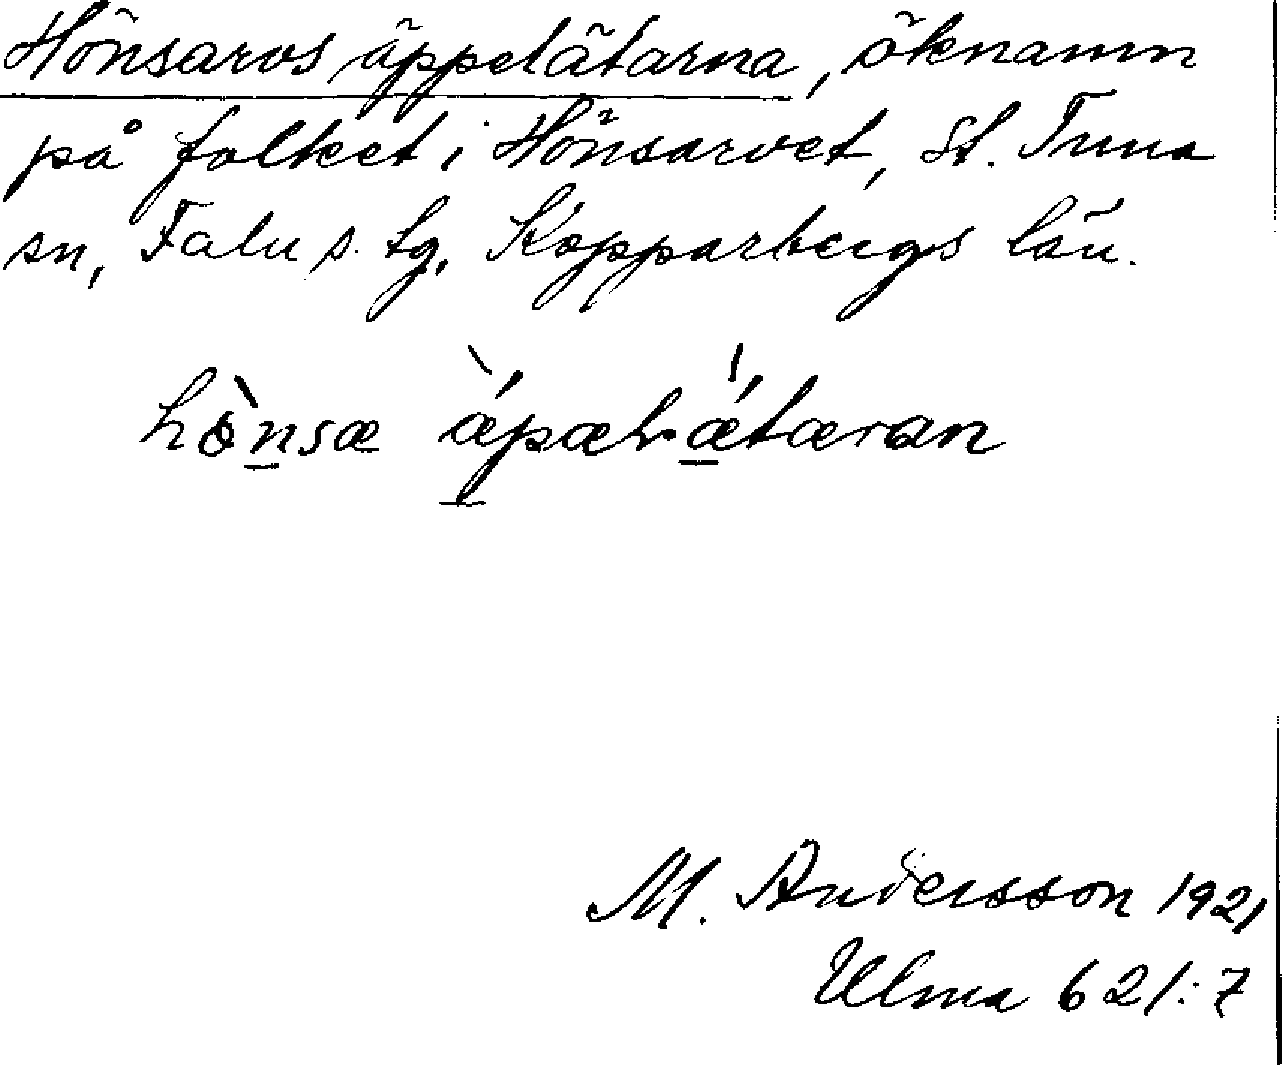 Hönsarvs äppelätarna, öknamn
på folket i Hönsarvet, St. Tuna
sn, Falu s. tg, Kopparbergs län.
M. Andersson 1921
Ulma 621:7